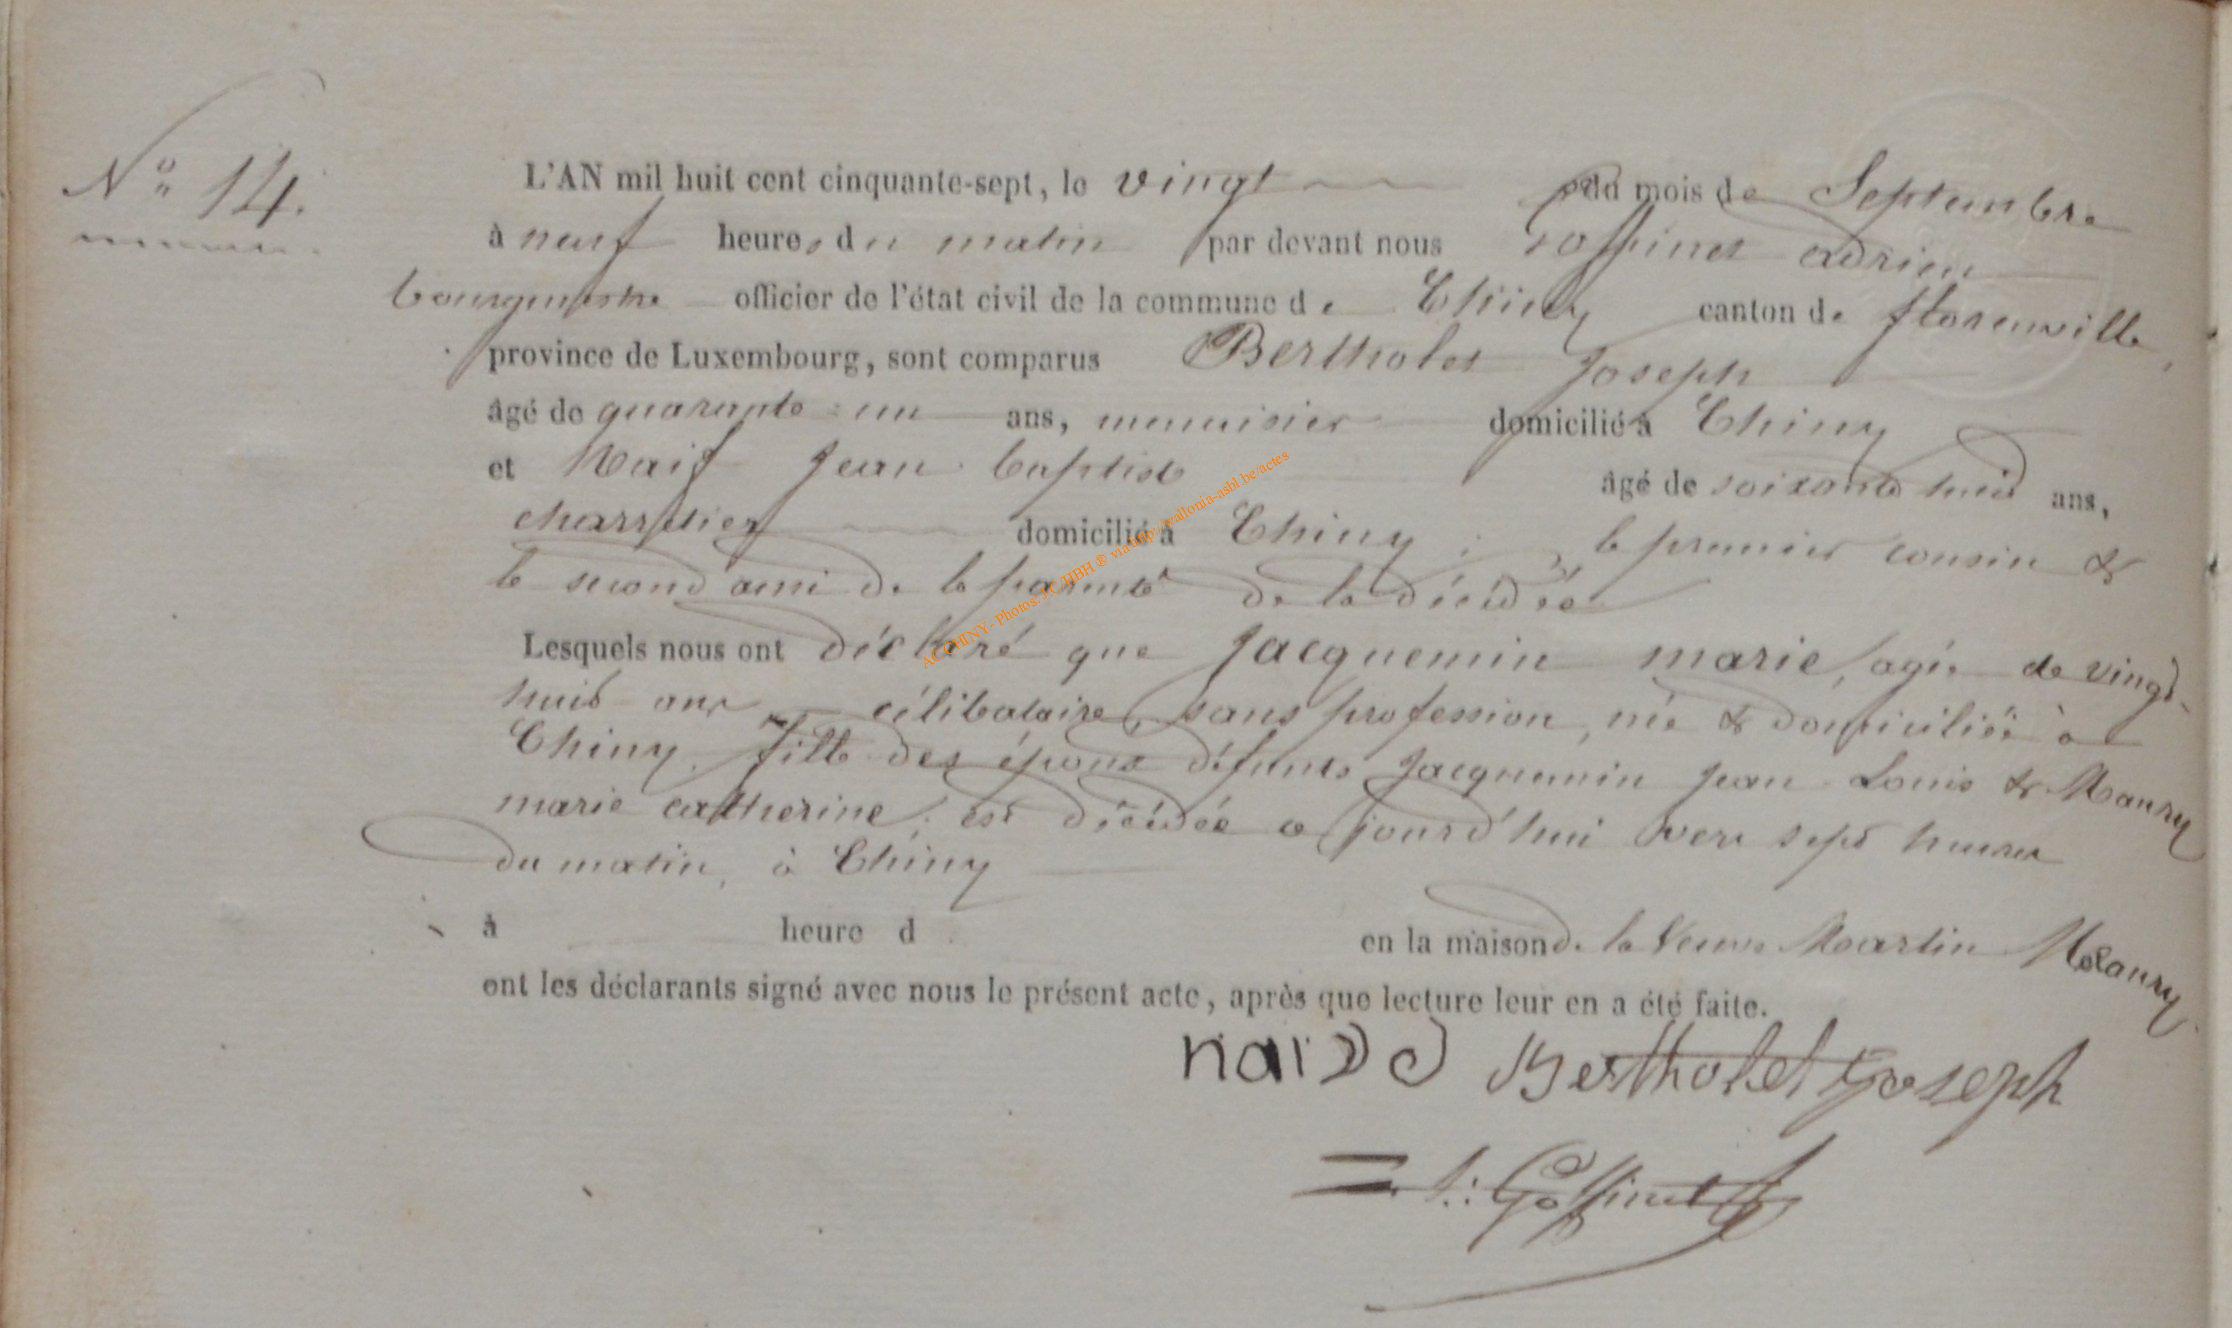 N° 14.
L'AN mil huit cent cinquante-sept, le vingt du mois de Septembre
à neuf heures du matin par devant nous Goffinet adrien
bourgmestre officier de l'état civil de la commune de Chiny canton de florenville,
province de Luxembourg, sont comparus Bertholet Joseph
âgé de quarante-un ans, menuisier domicilié à Chiny
et Naif Jean baptiste âgé de soixante huit ans,
charretier domicilié à Chiny ; le premier cousin &
le second ami de la parenté de la décédée
Lesquels nous ont déclaré que Jacquemin marie, agée de vingt-
huit ans célibataire, sans profession, née & domiciliée à
Chiny, fille des époux défunts Jacquemin Jean Louis &
marie catherine, est décédée aujourd'hui vers sept heures
du matin, à Chiny
à heure d en la maison de la Veuve Martin
ont les déclarants signé avec nous le présent acte, après que lecture leur en a été faite.
Bertholet Joseph
Goffinet
AC CHINY - Photos: JC HBH ® via http://wallonia-asbl.be/actes